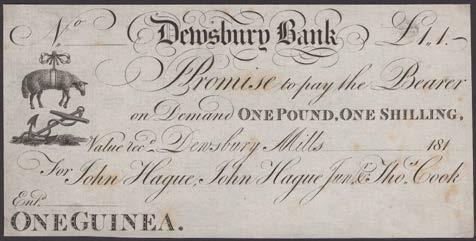 No Dewsbury Bank £1,1.-
Promise to pay the Bearer
on Demand ONE POUND, ONE SHILLING,
Value recd. Dewsbury Mills 181
For John Hague, John Hague Junr. & Thos. Cook
Entd.
ONE GUINEA.